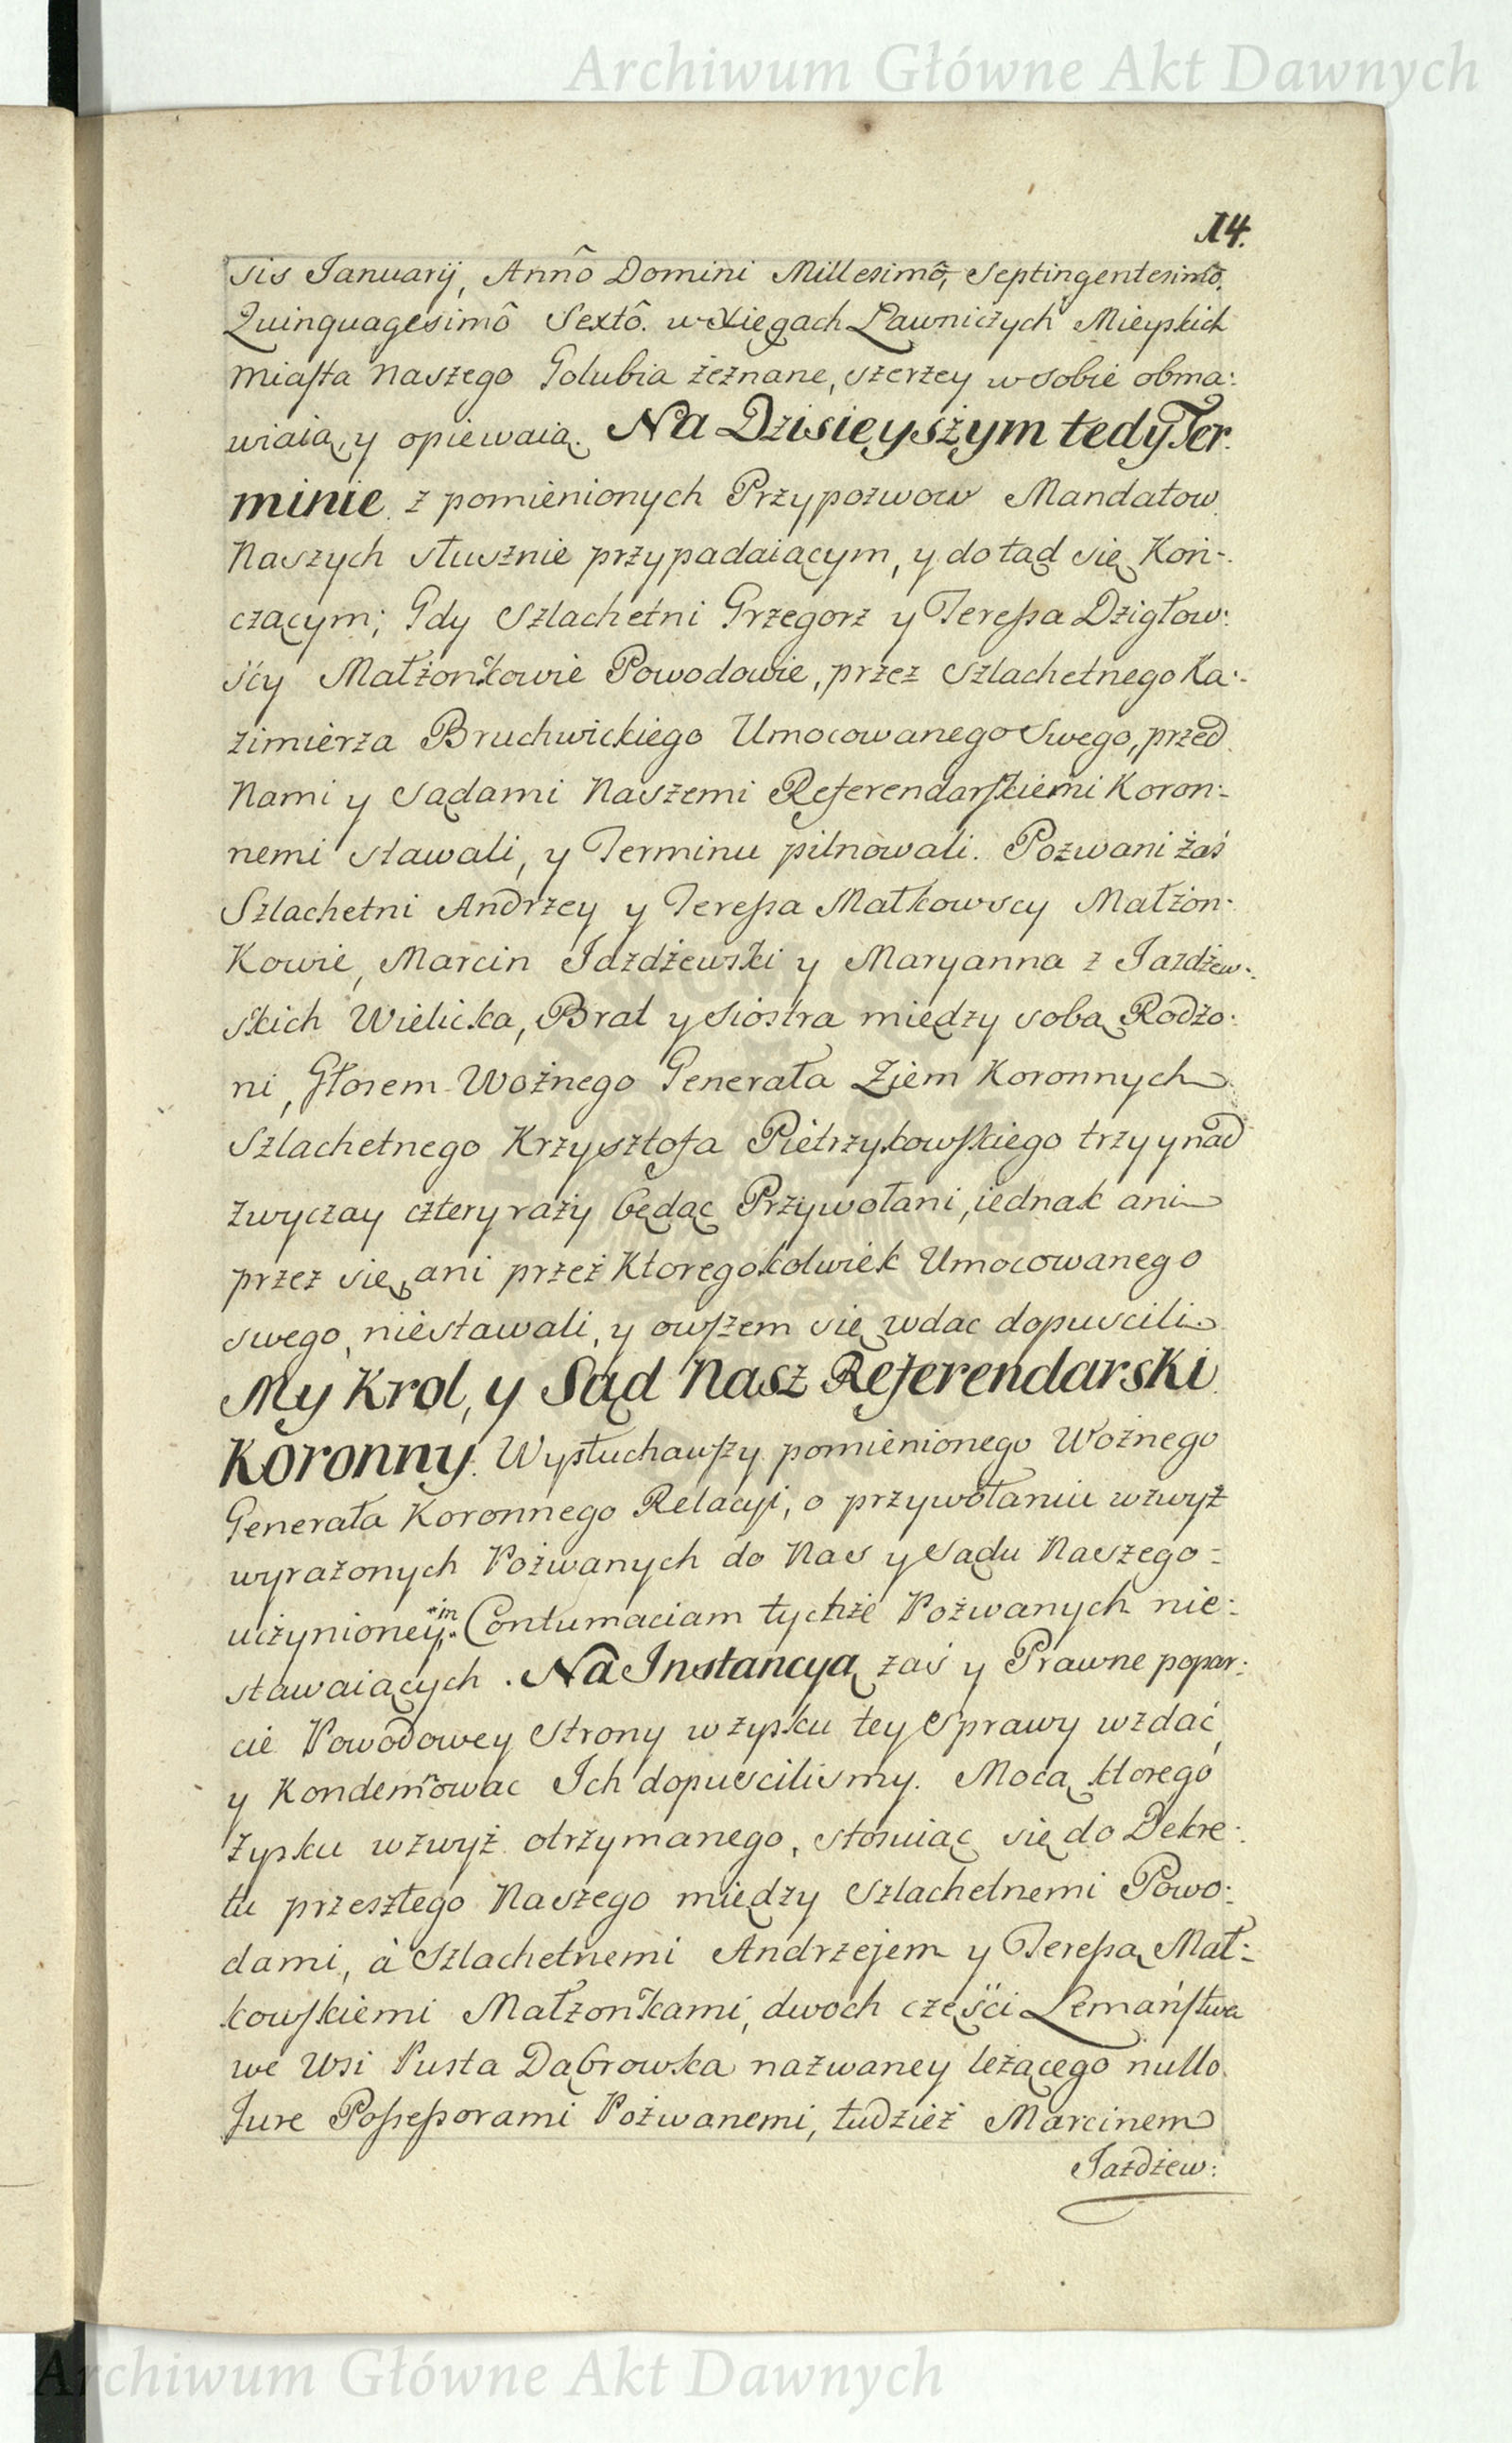 Archiwum Główne Akt Dawnych
14.
sis Januarij, Annô Domini Millesimô, Septingentesimô,
Quinquagesimô Sextô. w Xięgach Ławniczych Mieyskich
Miasta Naszego Golubia żeznane, szerzey w sobie obma:
wiaią, y opiewaią. Na Dzisieyszym tedy Ter:
minie z pomienionych Przypozwow Mandatow
Naszych słusznie przypadaiącym, y do tąd się Koń:
czącym; Gdy Szlachetni Grzegorz y Teressa Dzigłow:
scy Małżonkowie Powodowie, przez Szlachetnego Ka:
zimierza Bruchwickiego Umocowanego Swego, przed
Nami y Sądami Naszemi Referendarskiemi Koron:
nemi stawali, y Terminu pilnowali. Pozwani żaś
Szlachetni Andrzey y Teressa Małkowscy Małżon:
Kowie, Marcin Jazdżewski y Maryanna z Jazdżew:
skich Wielicka, Brat y Siostra między sobą Rodżo:
ni, Głosem Wożnego Generała Ziem Koronnych
Szlachetnego Krzysztofa Pietrzykowskiego trzy y nad
zwyczay cztery raży będąc Przywołani, iednak ani
przez się, ani przeż Ktoregokolwiek Umocowanego
swego, niestawali, y owszem się wdac dopuscili.
My Krol, y Sąd Nasz Referendarski
Koronny. Wysłuchawszy pomienionego Woźnego
Generała Koronnego Relacyi, o przywołaniu wzwyż
wyrażonych Pożwanych do Nas y Sądu Naszego
uczynioney in Contumaciam tychże Pożwanych nie:
stawaiących. Na Instancyą zaś y Prawne popar:
cie Powodowey Strony w zysku tey Sprawy wzdać,
y Kondemowac Ich dopuscilismy. Mocą ktorego
Zysku wzwyż otrzymanego, stosuiąc się do Dekre:
tu przeszłego Naszego między Szlachetnemi Powo:
dami, à Szlachetnemi Andrzejem y Teressą Mał:
kowskiemi Małżonkami, dwoch częsci Lemaństwa
we Wsi Pusta Dąbrowka nażwaney leżącego nullo
Jure Possessorami Pożwanemi, tudzież Marcinem
Jażdżew:
Archiwum Główne Akt Dawnych